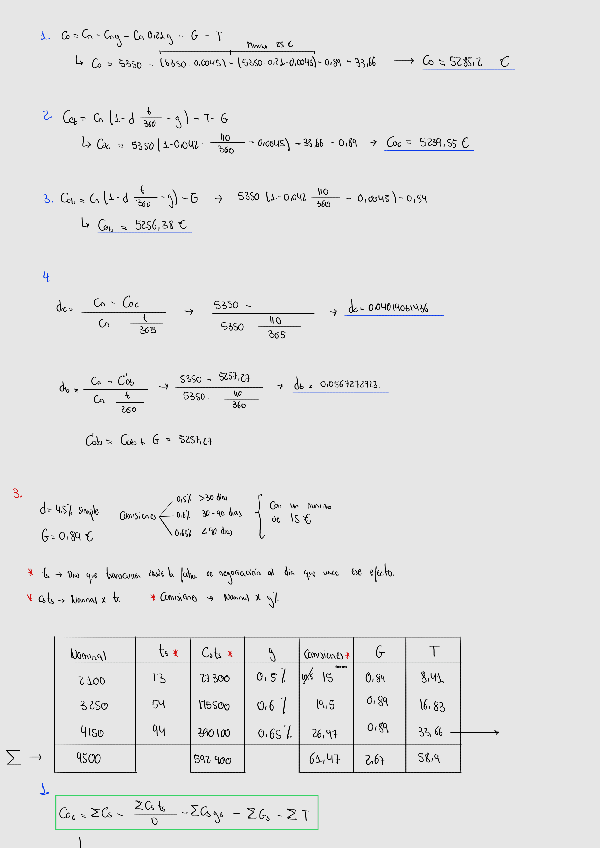 1. Co = Cn - Cn g - Cn 0.21 g - G - T
Minimo 25 €
↳ Co = 5350 - (5350 · 0.0045) - (5350 · 0.21 · 0.0045) - 0,89 - 33,66 → Co = 5285,2 €
2. Coc = Cn (1 - d t/360 - g) - T - G
↳ Coc = 5350 (1 - 0.042 · 110/360 - 0,0045) - 33,66 - 0,89 → Coc = 5239,55 €
3. Cob = Cn (1 - d t/360 - g) - G → 5350 (1 - 0,042 110/360 - 0,0045) - 0,89
↳ Cob = 5256,38 €
4.
dc = Cn - Coc / Cn t/365 → 5350 - / 5350 110/365 → dc = 0.04014061436
db = Cn - C'ob / Cn t/360 → 5350 - 5257,27 / 5350 · 110/360 → db = 0,0567272713
Cob = Cob + G = 5257,27
3.
d = 4.5% simple
G = 0,89 €
Comisiones
0,5% >30 dias
0.6% 30 - 90 dias
0.65% < 90 dias
Con un minimo
de 15 €
* ts → Dias que transcurren desde la fecha de negociación al dia que vence ese efecto.
* Csts → Nominal x ts * Comisiones → Nominal x g%
Nominal ts * Csts * g Comisiones * G T
2100 13 27300 0,5% 10,5 15 0,89 8,41
3250 54 175500 0,6% 19,5 0,89 16,83
4150 94 390100 0,65% 26,97 0,89 33,66
Σ → 9500 592900 61,47 2,67 58,9
1.
Coc = ΣCs = ΣCs ts / D - ΣCs gs - ΣGs - ΣT